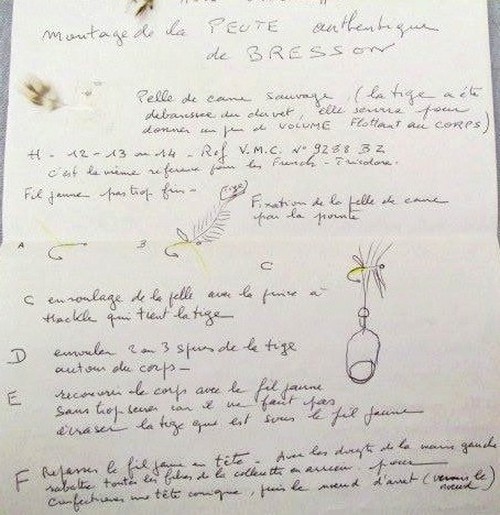 Montage de la PEUTE authentique
de BRESSON
Pelle de cane sauvage (la tige a été
débarassée du duvet, elle servira pour
donner un peu de VOLUME Flottant au CORPS)
H - 12 - 13 ou 14 - Ref V.M.C. N° 9288 BZ
c'est la même reference pour les French-Tricolore.
Fil jaune pas trop fin -
Tige
Fixation de la pelle de cane
par la pointe
A
B
C
C enroulage de la pelle avec la pince à
Hackle qui tient la tige
D enrouler 2 ou 3 spires de la tige
autour du corps -
E recouvrir le corps avec le fil jaune
sans trop serrer car il ne faut pas
écraser la tige que est sous le fil jaune
F Repasser le fil jaune en tête - avec les doigts de la main gauche
rabattre toutes les fibres de la collerette en arrière pour
confectionner une tête conique, puis le nœud d'arret (vernis le
nœud)